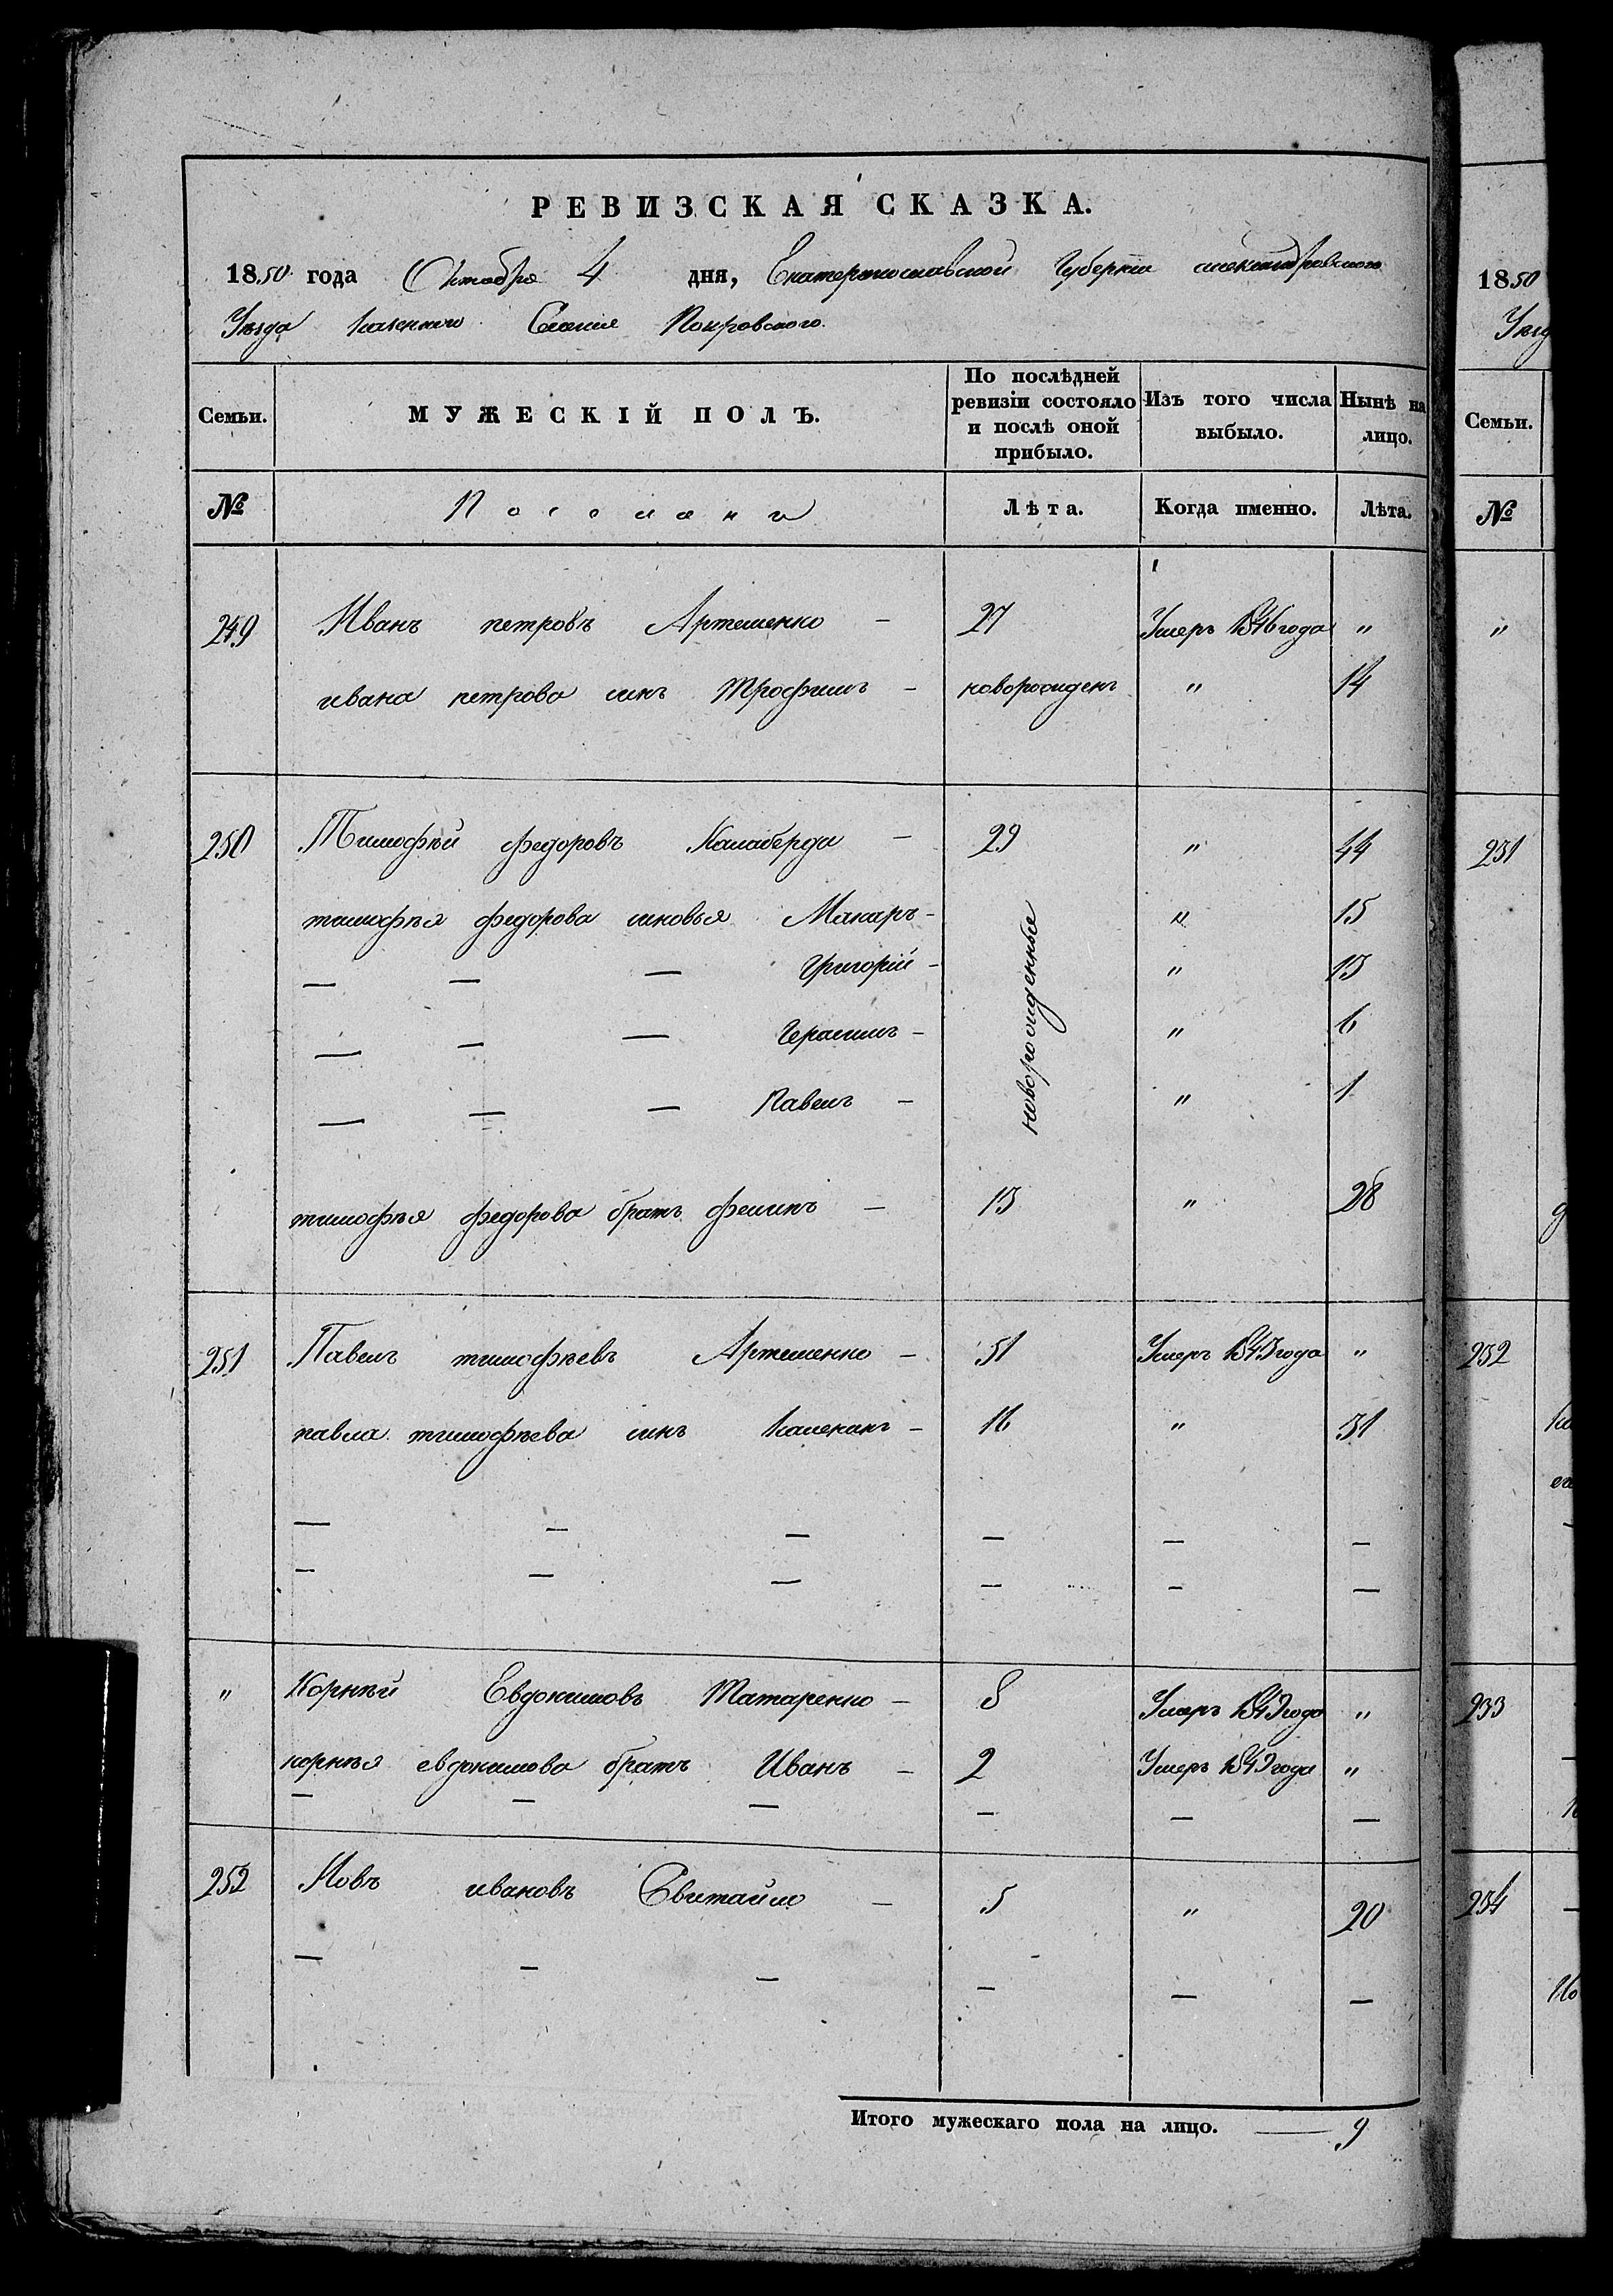 РЕВИЗСКАЯ СКАЗКА.
1850 года Октября 4 дня, Екатеринославской Губернии Александровского
Уезда казенного Селения Покровского.
Семьи. МУЖЕСКІЙ ПОЛЪ. По послѣдней ревизіи состояло и послѣ оной прибыло. Изъ того числа выбыло. Нынѣ на лицо.
№ Поселянъ Лѣта. Когда именно. Лѣта.
249 Иванъ петровъ Артеменко — 27 Умеръ 1846 года "
ивана петрова синъ Трофимъ — новорожденъ " 14
250 Тимофѣй федоровъ Калаберда — 29 " 44
тимофѣя федорова синовья Макаръ — новорожденные " 15
— — — Григорій — " 13
— — — Герасимъ — " 6
— — — Павелъ — " 1
тимофѣя федорова братъ филипъ — 13 " 28
251 Павелъ тимофѣевъ Артеменко — 51 Умеръ 1843 года "
павла тимофѣева синъ — 16 " 31
— — — — — —
— — — — — —
" Корнѣй Евдокимовъ Татаренко — 8 Умеръ года "
корнѣя евдокимова братъ Иванъ — 2 Умеръ года "
— — — — — —
252 Іовъ ивановъ Свитайло — 5 " 20
— — — — — —
Итого мужескаго пола на лицо. — 9
1850
Уезд
Семьи.
№
"
231
232
233
234